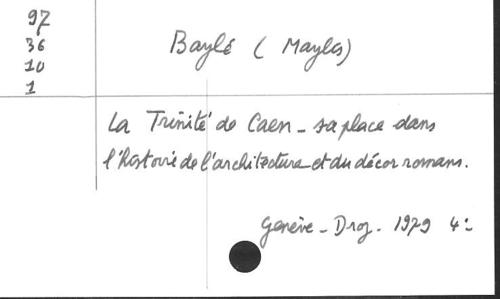 97
36
10
1
Baylé ( Maylis)
La Trinité de Caen - sa place dans
l'histoire de l'architecture et du décor romans.
Genève - Droz. 1979 4º